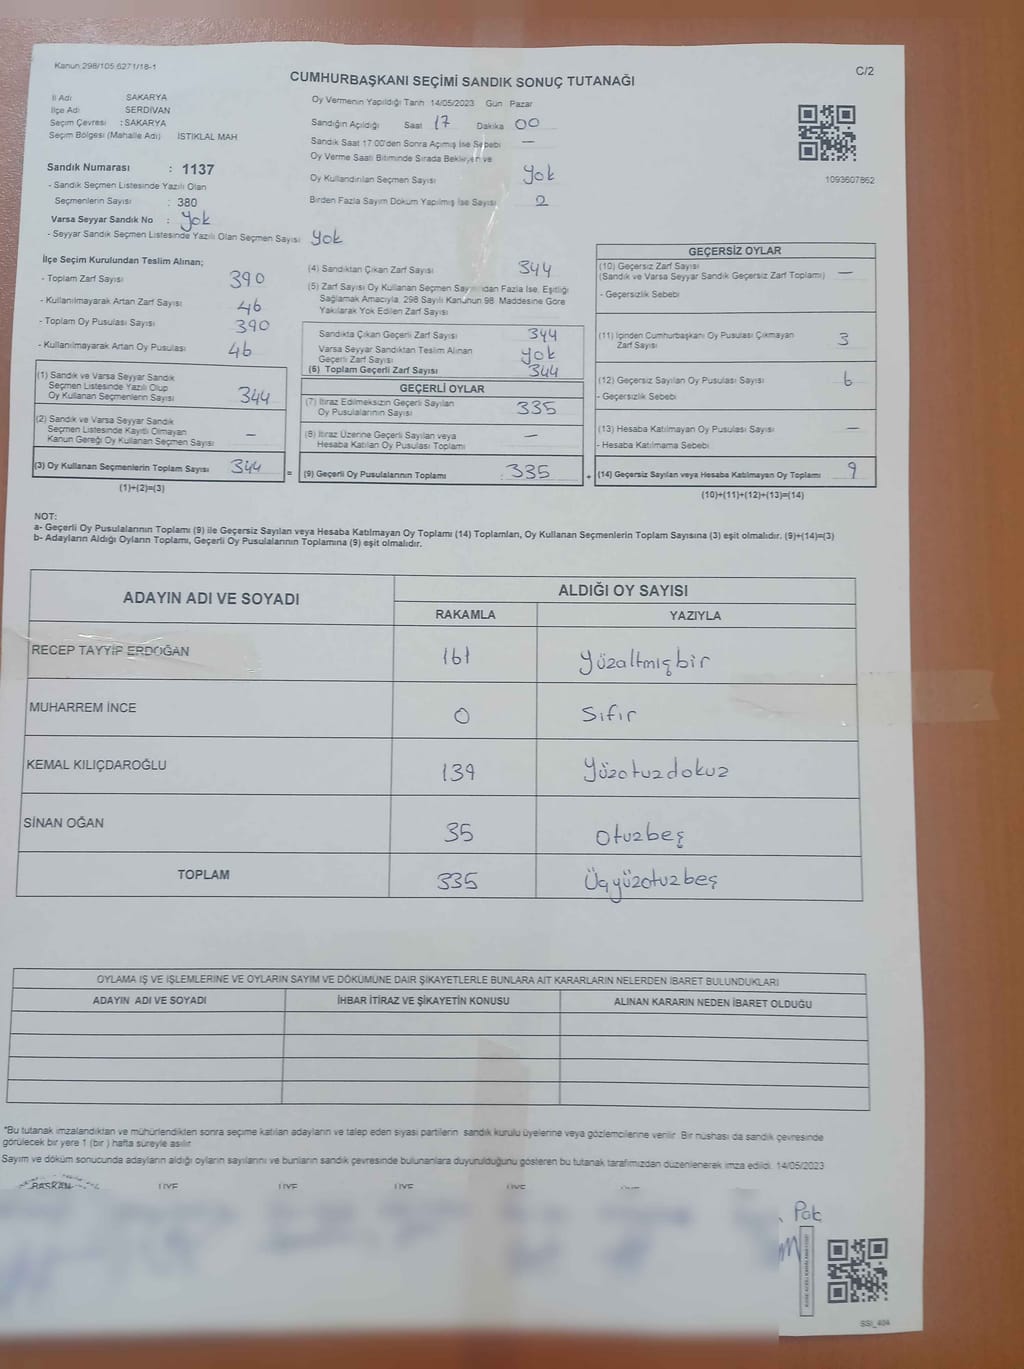 Kanun:298/105,6271/18-1
CUMHURBAŞKANI SEÇİMİ SANDIK SONUÇ TUTANAĞI
C/2
İl Adı : SAKARYA
İlçe Adı : SERDİVAN
Seçim Çevresi : SAKARYA
Seçim Bölgesi (Mahalle Adı) : İSTİKLAL MAH
Sandık Numarası : 1137
- Sandık Seçmen Listesinde Yazılı Olan
Seçmenlerin Sayısı : 380
Varsa Seyyar Sandık No : Yok
- Seyyar Sandık Seçmen Listesinde Yazılı Olan Seçmen Sayısı : Yok
Oy Vermenin Yapıldığı Tarih 14/05/2023 Gün Pazar
Sandığın Açıldığı Saat 17 Dakika 00
Sandık Saat 17:00'den Sonra Açılmış İse Sebebi —
Oy Verme Saati Bitiminde Sırada Bekleyen ve
Oy Kullandırılan Seçmen Sayısı Yok
Birden Fazla Sayım Döküm Yapılmış İse Sayısı 2
1093607862
İlçe Seçim Kurulundan Teslim Alınan;
- Toplam Zarf Sayısı 390
- Kullanılmayarak Artan Zarf Sayısı 46
- Toplam Oy Pusulası Sayısı 390
- Kullanılmayarak Artan Oy Pusulası 46
(1) Sandık ve Varsa Seyyar Sandık
Seçmen Listesinde Yazılı Olup
Oy Kullanan Seçmenlerin Sayısı 344
(2) Sandık ve Varsa Seyyar Sandık
Seçmen Listesinde Kayıtlı Olmayan
Kanun Gereği Oy Kullanan Seçmen Sayısı —
(3) Oy Kullanan Seçmenlerin Toplam Sayısı 344
(1)+(2)=(3)
(4) Sandıktan Çıkan Zarf Sayısı 344
(5) Zarf Sayısı Oy Kullanan Seçmen Sayısından Fazla İse, Eşitliği
Sağlamak Amacıyla, 298 Sayılı Kanunun 98. Maddesine Göre
Yakılarak Yok Edilen Zarf Sayısı
Sandıkta Çıkan Geçerli Zarf Sayısı 344
Varsa Seyyar Sandıktan Teslim Alınan
Geçerli Zarf Sayısı Yok
(6) Toplam Geçerli Zarf Sayısı 344
GEÇERLİ OYLAR
(7) İtiraz Edilmeksizin Geçerli Sayılan
Oy Pusulalarının Sayısı 335
(8) İtiraz Üzerine Geçerli Sayılan veya
Hesaba Katılan Oy Pusulası Toplamı —
= (9) Geçerli Oy Pusulalarının Toplamı 335 +
GEÇERSİZ OYLAR
(10) Geçersiz Zarf Sayısı
(Sandık ve Varsa Seyyar Sandık Geçersiz Zarf Toplamı) —
- Geçersizlik Sebebi
(11) İçinden Cumhurbaşkanı Oy Pusulası Çıkmayan
Zarf Sayısı 3
(12) Geçersiz Sayılan Oy Pusulası Sayısı 6
- Geçersizlik Sebebi
(13) Hesaba Katılmayan Oy Pusulası Sayısı —
- Hesaba Katılmama Sebebi
(14) Geçersiz Sayılan veya Hesaba Katılmayan Oy Toplamı 9
(10)+(11)+(12)+(13)=(14)
NOT:
a- Geçerli Oy Pusulalarının Toplamı (9) ile Geçersiz Sayılan veya Hesaba Katılmayan Oy Toplamı (14) Toplamları, Oy Kullanan Seçmenlerin Toplam Sayısına (3) eşit olmalıdır. (9)+(14)=(3)
b- Adayların Aldığı Oyların Toplamı, Geçerli Oy Pusulalarının Toplamına (9) eşit olmalıdır.
ADAYIN ADI VE SOYADI
ALDIĞI OY SAYISI
RAKAMLA YAZIYLA
RECEP TAYYİP ERDOĞAN 161 Yüzaltmışbir
MUHARREM İNCE 0 Sıfır
KEMAL KILIÇDAROĞLU 139 Yüzotuzdokuz
SİNAN OĞAN 35 Otuzbeş
TOPLAM 335 Üçyüzotuzbeş
OYLAMA İŞ VE İŞLEMLERİNE VE OYLARIN SAYIM VE DÖKÜMÜNE DAİR ŞİKAYETLERLE BUNLARA AİT KARARLARIN NELERDEN İBARET BULUNDUKLARI
ADAYIN ADI VE SOYADI İHBAR İTİRAZ VE ŞİKAYETİN KONUSU ALINAN KARARIN NEDEN İBARET OLDUĞU
*Bu tutanak imzalandıktan ve mühürlendikten sonra seçime katılan adayların ve talep eden siyasi partilerin sandık kurulu üyelerine veya gözlemcilerine verilir. Bir nüshası da sandık çevresinde
görülecek bir yere 1 (bir ) hafta süreyle asılır.
Sayım ve döküm sonucunda adayların aldığı oyların sayılarını ve bunların sandık çevresinde bulunanlara duyurulduğunu gösteren bu tutanak tarafımızdan düzenlenerek imza edildi. 14/05/2023
BAŞKAN ÜYE ÜYE ÜYE ÜYE
SSI_404